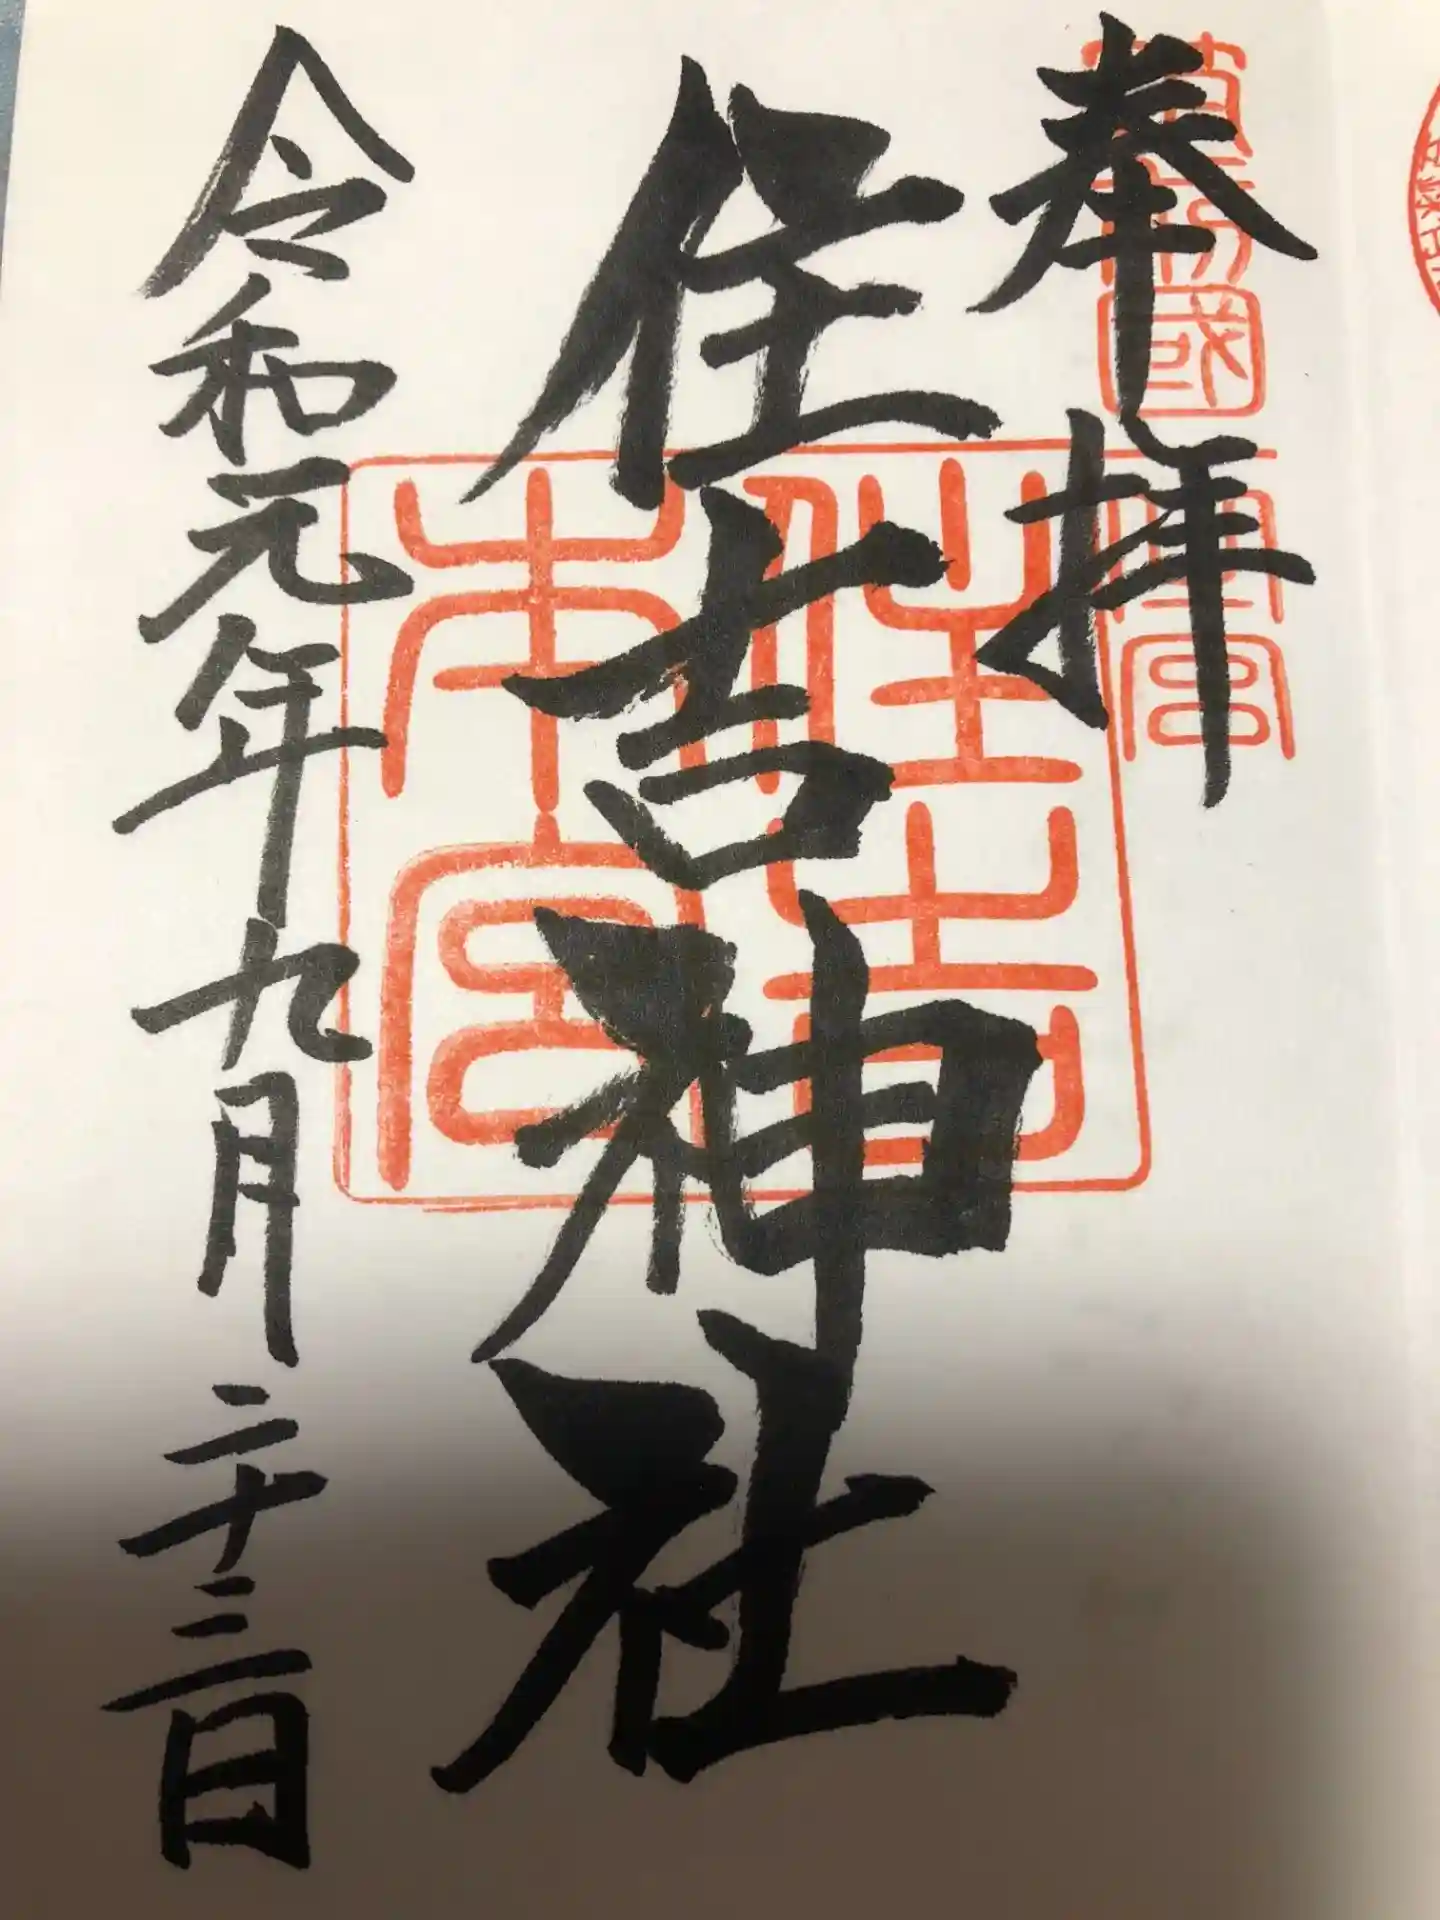 奉拝
住吉神社
令和元年九月二十三日
筑前國
一宮
住吉
本宮